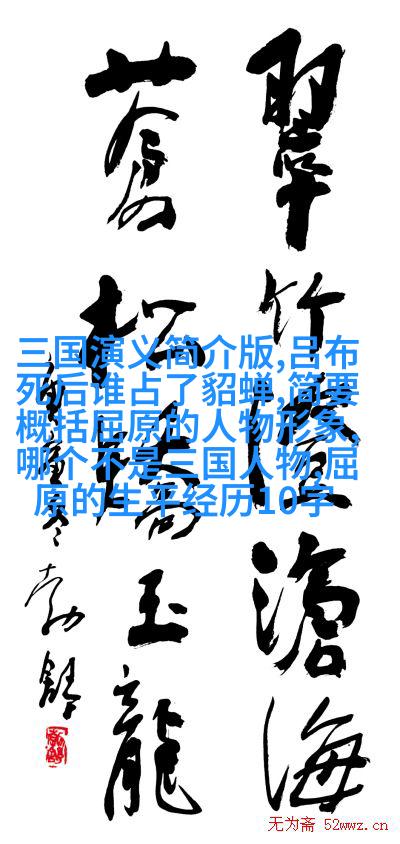 翠竹滄海
蒼松玉龍
勃舒
三国演义简介版,吕布
死后谁占了貂蝉,简要
概括屈原的人物形象,
哪个不是三国人物,屈
原的生平经历10字
无为斋 52wwz.cn